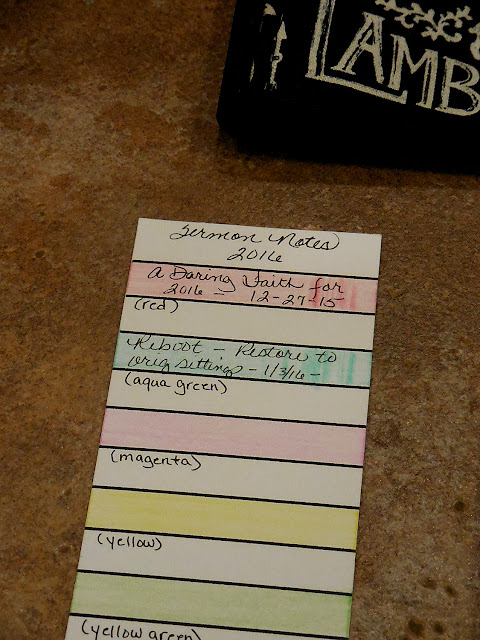 LAMB
Sermon Notes
2016
A Daring Faith for
2016 – 12-27-15
(red)
Reboot – Restore to
orig settings – 1/3/16 –
(aqua green)
(magenta)
(yellow)
(yellow green)